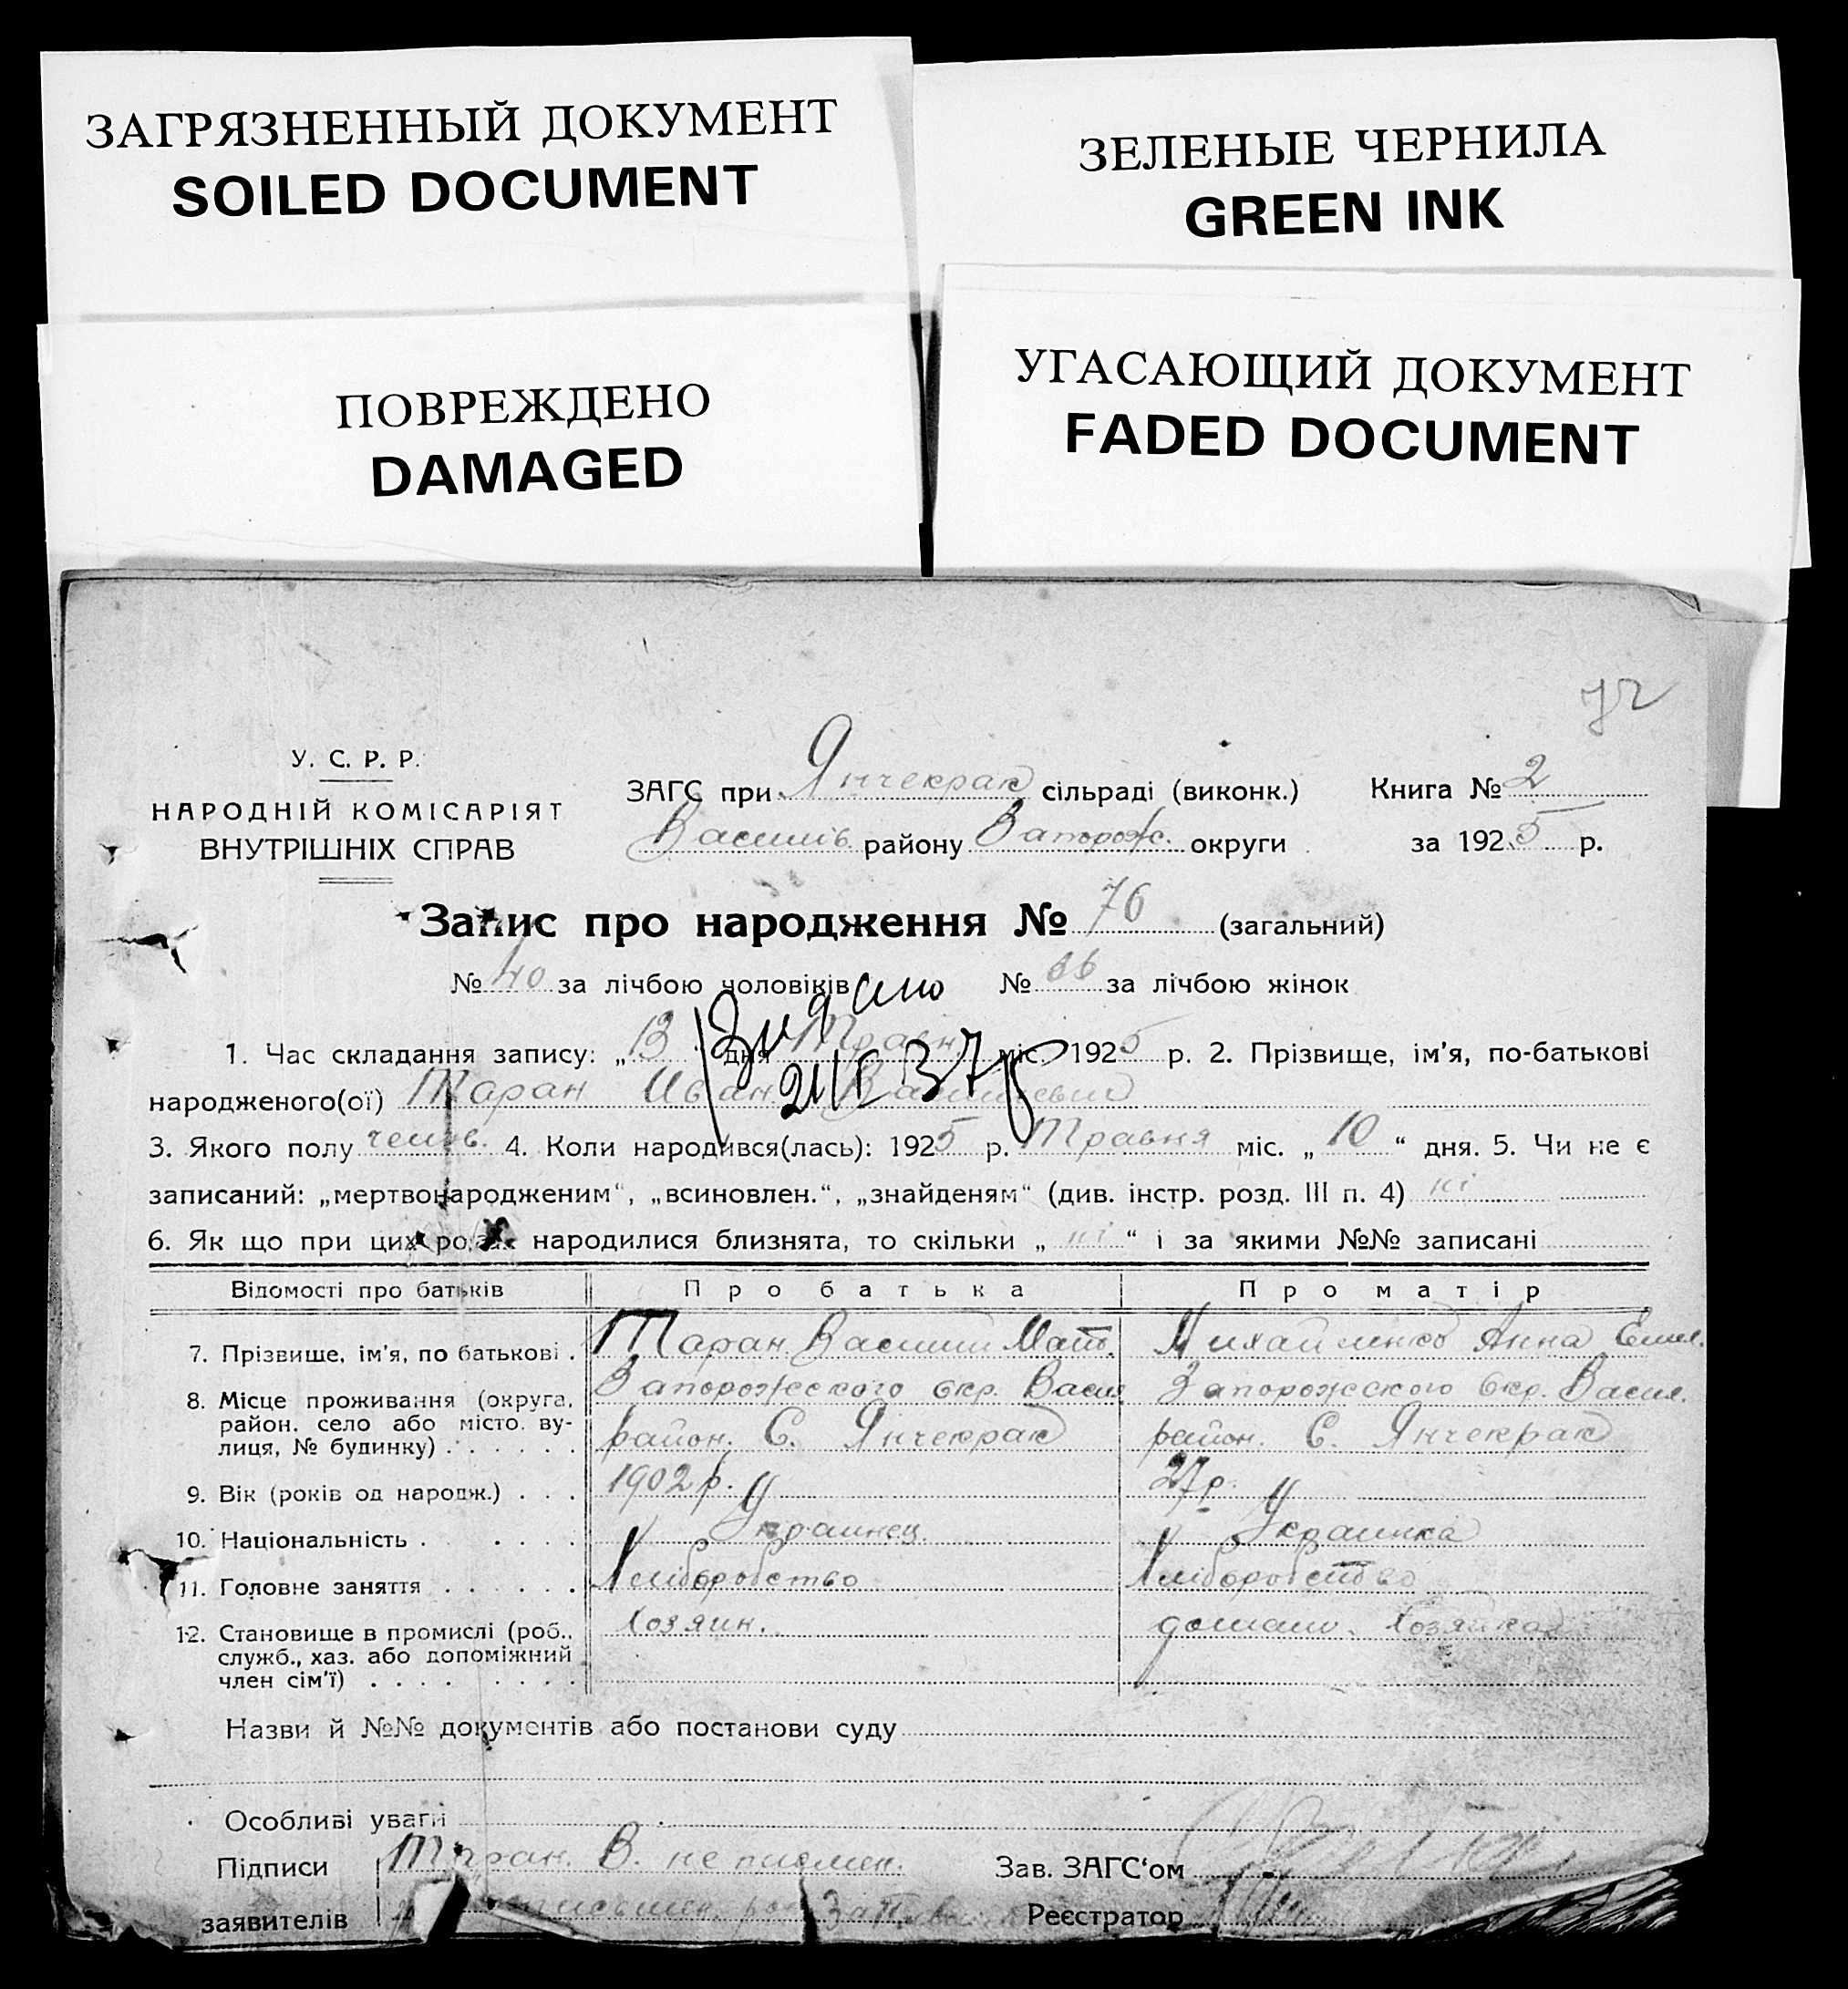 ЗАГРЯЗНЕННЫЙ ДОКУМЕНТ
SOILED DOCUMENT
ЗЕЛЕНЫЕ ЧЕРНИЛА
GREEN INK
ПОВРЕЖДЕНО
DAMAGED
УГАСАЮЩИЙ ДОКУМЕНТ
FADED DOCUMENT
72
У. С. Р. Р.
НАРОДНІЙ КОМІСАРІЯТ
ВНУТРІШНІХ СПРАВ
ЗАГС при Янчекрак сільраді (виконк.) Книга № 2
Василів. району Запорож. округи за 1925 р.
Запис про народження № 76 (загальний)
№ 40 за лічбою чоловіків № 36 за лічбою жінок
Видано
21/X 37р
1. Час складання запису: „13“ дня Травн міс. 1925 р. 2. Прізвище, ім'я, по-батькові
народженого(ої) Таран Иван Васильевич
3. Якого полу челов. 4. Коли народився(лась): 1925 р. Травня міс. „10“ дня. 5. Чи не є
записаний: „мертвонародженим“, „всиновлен.“, „знайденям“ (див. інстр. розд. III п. 4) ні
6. Як що при цих родах народилися близнята, то скільки „ні“ і за якими №№ записані
Відомості про батьків Про батька Про матір
7. Прізвище, ім'я, по батькові . Таран Василий Матв. Михайленко Анна Емел.
8. Місце проживання (округа, Запорожского окр. Васил. Запорожского окр. Васил.
район. село або місто. ву- район. С. Янчекрак район. С. Янчекрак
лиця, № будинку) . . . . . .
9. Вік (років од народж.) . . . 1902 р. 27 р.
10. Національність . . . . . Украинец. Украинка
11. Головне заняття . . . . . . Хліборобство Хліборобство
12. Становище в промислі (роб., Хозяин. домашн. Хозяйка
служб., хаз. або допоміжний
член сім'ї) . . . . . . . .
Назви й №№ документів або постанови суду
Особливі уваги
Підписи Таран. В. не письмен. Зав. ЗАГС'ом
заявителів Реєстратор